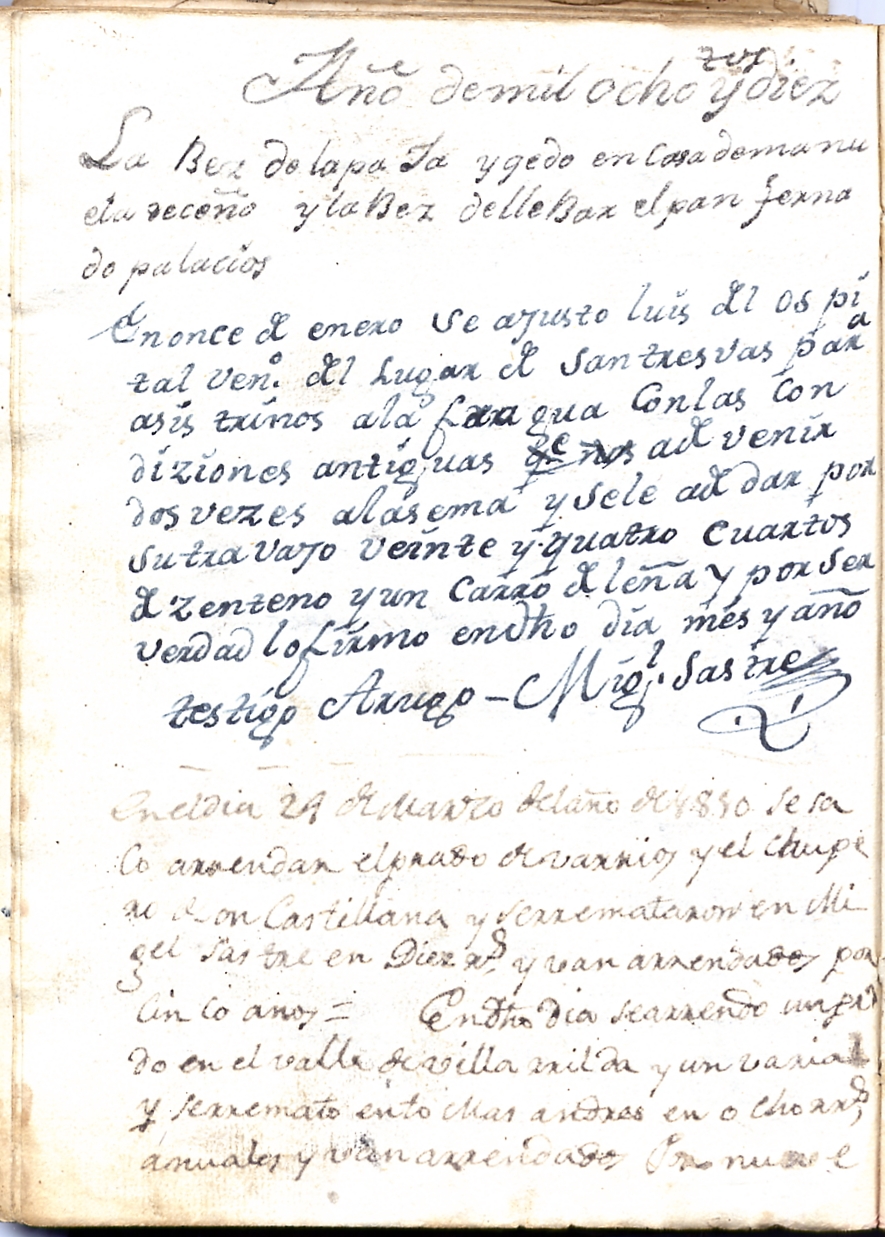 zos
Año de mil ocho y diez
La Bez de lapa Ja y gedo en Casa de manu
ela receño y la Bez delleBar el pan ferna
do palacios
En once de enero se ajusto luis del os pi
tal ven.º del Lugar de Santresvas para
asis trinos ala fragua Con las Con
diziones antiguas ade venir
dos vezes alasema y sele ade dar por
su travajo veinte y quatro cuartos
de zenteno y un Carro de leña y por ser
verdad lo firmo endho dia mes y año
testigo Arugo - Migl. Sastre
En el dia 24 de Marzo del año de 1810 se sa
Co arrendar el prado de varrios y el Chupe
ro de on Castillana y serremataron en Mi
gel Sastre en Diez rs y van arrendados por
Cinco anos = Endho dia searrendo un pra
do en el valle de villa rrilda y un varial
y serremato ento Mas andres en ocho rrs
anuales y van arrendados Por nueve